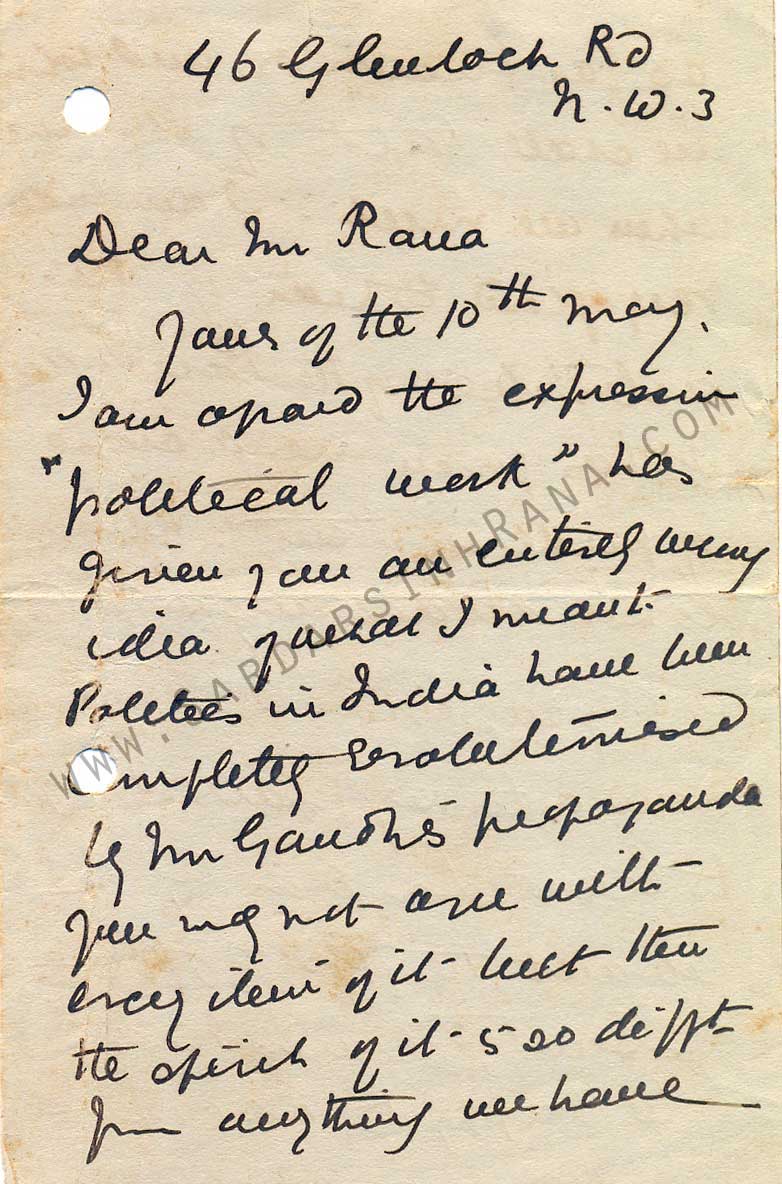 46 Glenloch Rd
N.W.3
Dear Mr Rana
Yours of the 10th May.
I am afraid the expression
"political work" has
given you an entirely wrong
idea of what I meant.
Politics in India have been
completely revolutionised
by Mr Gandhi's propaganda
you may not agree with
every item of it but then
the spirit of it is so difft
from anything we have
WWW.SARDARSINHRANA.COM